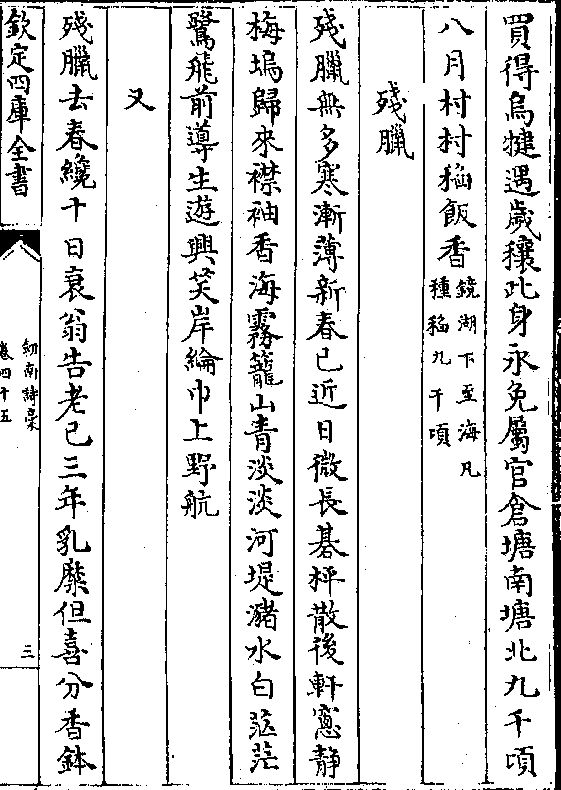 買得烏犍遇歲穰此身永免屬官倉塘南塘北九千頃
八月村村秔飯香鏡湖下至海凡
種稻九千頃
殘臘
殘臘無多寒漸薄新春已近日微長棊枰散後軒窻静
梅塢歸來襟袖香海霧籠山青淡淡河堤瀦水白茫茫
鷺飛前導生遊興笑岸綸巾上野航
又
殘臘去春纔十日衰翁告老已三年乳糜但喜分香鉢
欽定四庫全書
劒南詩稾
卷四十五
三